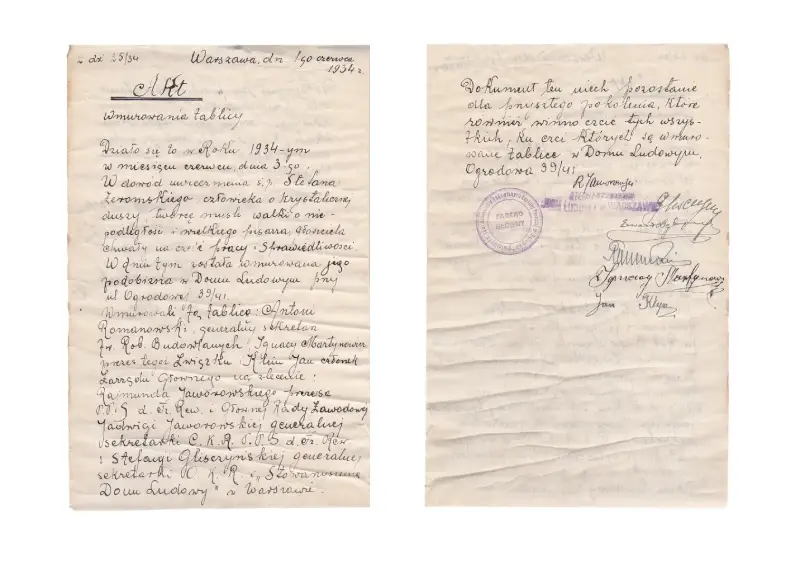 L. dz. 25/34 Warszawa, dn 1go czerwca
1934 r.
Akt
Wmurowania tablicy
Działo się to w Roku 1934-ym
w miesiącu czerwcu, dnia 3-go.
W dowód uwiecznienia ś.p. Stefana
Żeromskiego, człowieka o kryształowej
duszy, twórcę myśli walki o nie-
podległość i wielkiego pisarza, głosiciela
chwały na cześć pracy i Sprawiedliwości
W dniu tym została wmurowana jego
podobizna w Domu Ludowym przy
ul Ogrodowej 39/41.
Wmurowali tę tablicę: Antoni
Romanowski, generalny sekretarz
Zw. Rob. Budowlanych, Ignacy Martynowicz
prezes tegoż Związku i Jan członek
Zarządu Głównego na zlecenie:
Rajmunda Jaworowskiego prezesa
P.P.S d. fr. Rew. i Głównej Rady Zawodowej
Jadwigi Jaworowskiej generalnej
sekretarki C.K.R. P.P.S d. fr. Rew
i Stefanji Gliszczyńskiej generalnej
sekretarki W. K. R i „Stowarzyszenie
Domu Ludowy" w Warszawie.
Dokument ten niech pozostanie
dla przyszłego pokolenia, które
również winno czcić tych wszys-
tkich, ku czci których są wmuro-
wane tablice w Domu Ludowym,
Ogrodowa 39/41.
R Jaworowski
DOM LUDOWY W WARSZAWIE
ZARZĄD
GŁÓWNY
Ignacy Martynowicz
Jan